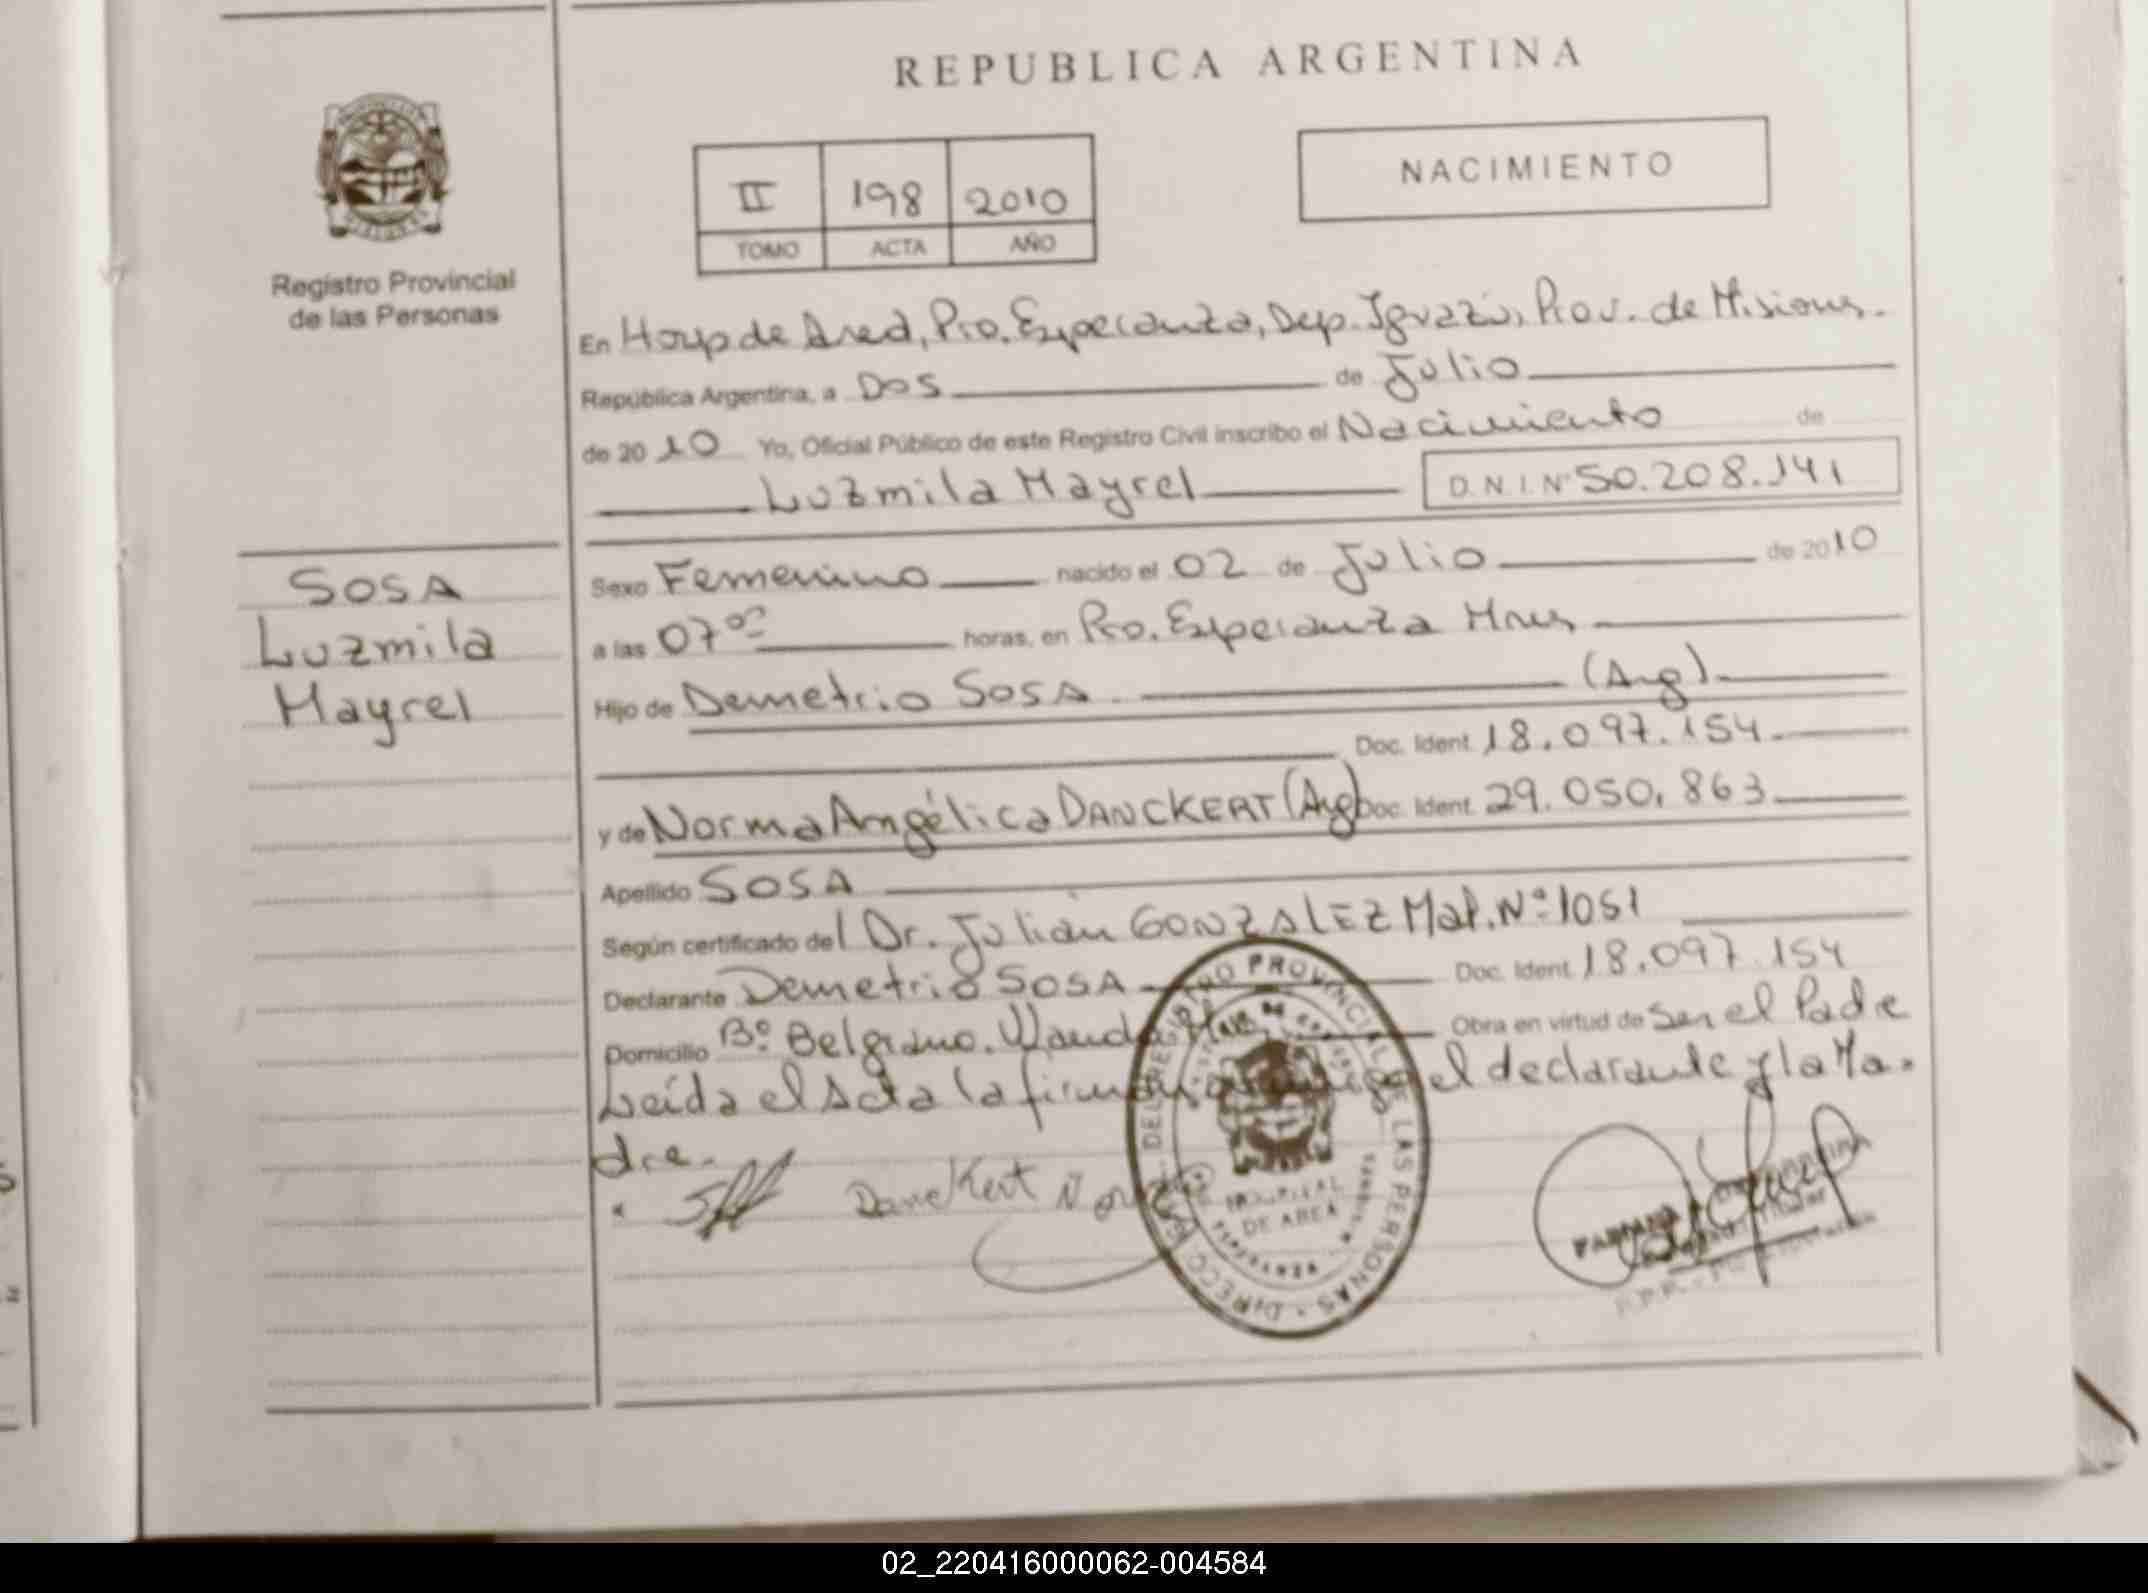 REPUBLICA ARGENTINA
NACIMIENTO
II 198 2010
TOMO ACTA AÑO
Registro Provincial
de las Personas
En Hosp de Area, Pto. Esperanza, Dep. Iguazú, Prov. de Misiones.
República Argentina, a Dos de Julio
de 2010 Yo, Oficial Público de este Registro Civil inscribo el Nacimiento de
Luzmila Mayrel D.N.I. Nº 50.208.141
SOSA
Luzmila
Mayrel
Sexo Femenino nacido el 02 de Julio de 2010
a las 07⁰⁰ horas, en Pto. Esperanza Mnes
Hijo de Demetrio SOSA (Arg)
Doc. Ident. 18.097.154
y de Norma Angélica DANCKERT (Arg) Doc. Ident. 29.050.863
Apellido SOSA
Según certificado del Dr. Julián GONZALEZ Mat. Nº 1051
Declarante Demetrio SOSA Doc. Ident. 18.097.154
Domicilio Bº Belgrano. Wanda Obra en virtud de Ser el Padre
Leída el Acta la firman el declarante y la Ma-
dre.
Danckert Norma
DIRECC. DEL REGISTRO PROVINCIAL DE LAS PERSONAS
HOSPITAL
DE AREA
02_220416000062-004584